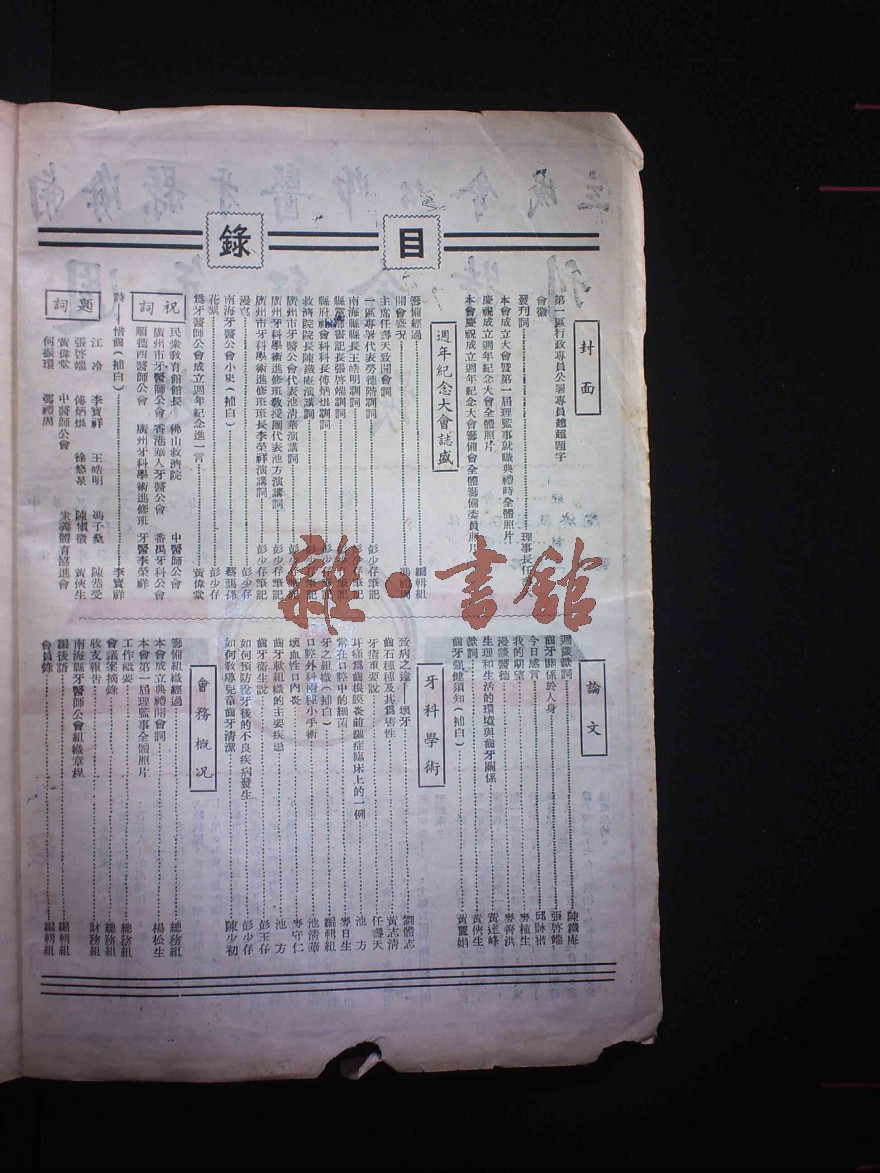 目錄
封面
第一區行政專員公署專員趙超題字
會徽
發刊詞……理事長任壽
本會成立大會暨第一屆理監事就職典禮時全體照片
慶祝成立週年紀念大會全體照片
本會慶祝成立週年紀念大會籌備會全體籌備委員照片
週年紀念大會誌盛
籌備經過……編輯組
開會盛況……馮禮周
主席任壽天致開會詞……彭少存筆記
一區專署代表勞德階訓詞……彭少存筆記
南海縣縣長王皓明訓詞……彭少存筆記
縣黨部書記長張啓端訓詞……彭少存筆記
縣府社會科科長傅炳焜訓詞……彭少存筆記
救濟院院長陳鐵庵演講詞……彭少存筆記
廣州市牙醫公會代表池清華演講詞……彭少存筆記
廣州牙科學術進修班教授團代表池方演講詞……彭少存筆記
廣州市牙科學術進修班班長李榮祥演講詞……彭少存筆記
漫寫……彭少存
南海牙醫公會小史(補白)……蔡龍孫
花絮……彭少存
爲牙醫師公會成立週年紀念進一言……黃偉堂
祝詞
民衆敎育館館長 佛山救濟院 中醫師公會
廣州市牙醫師公會 香港華人牙醫公會 番禺牙科公會
順德西醫師公會 廣州牙科學術進修班 牙醫李榮祥
詩——惜齒(補白)……李寶祥
題詞
江冷 李寶祥 王皓明 馮子燊 陳恭受
張啓端 傅炳焜 徐悠泉 陳慎徽 黃俠生
黃偉堂 中醫師公會 眾義體育協進會
何振環 馮禮周
論文
週歲獻詞……陳鐵庵
齒牙關係於人身……張啓端
今日感言……邱詠楷
我的期望……麥植生
漫談醫德……麥善洪
生理和生活的環境與齒牙關係……黃達峰
獻詞……黃俠生
齒牙强健須知(補白)……黃麗娟
牙科學術
致病之逢——壞牙……劉體志
齒石種種及其爲害性……黃志清
牙瘡重要說……任壽天
耳痛爲齒根膜炎前驅症臨床上的一例……池方
常在口腔中的細菌……麥日生
牙之組織(補白)……編輯組
口腔外科兩種小手術……池清華
壞血性口內炎……麥守仁
齒牙軟組織的主要疾患……池方
齒牙衞生說……彭玉存
如何預防脫牙後的不良疾病發生……彭少存
如何敎導兒童齒牙清潔……陳少初
會務概況
籌備組織經過……總務組
本會成立典禮開會詞……楊松生
本會第一屆理監事全體照片
工作概要……總務組
會議案摘錄……總務組
收支報告……財務組
南海縣牙醫師公會組織章程
編後語……編輯組
會員錄……編輯組
雜·書館